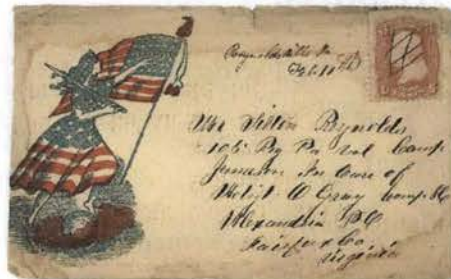 Reynoldsville Pa
Feb 11
Mr Tilton Reynolds
105 Reg Pa Vol Camp
Jameson In Care of
A Gray Comp H
Alexandria DC
Fairfax Co
Virginia